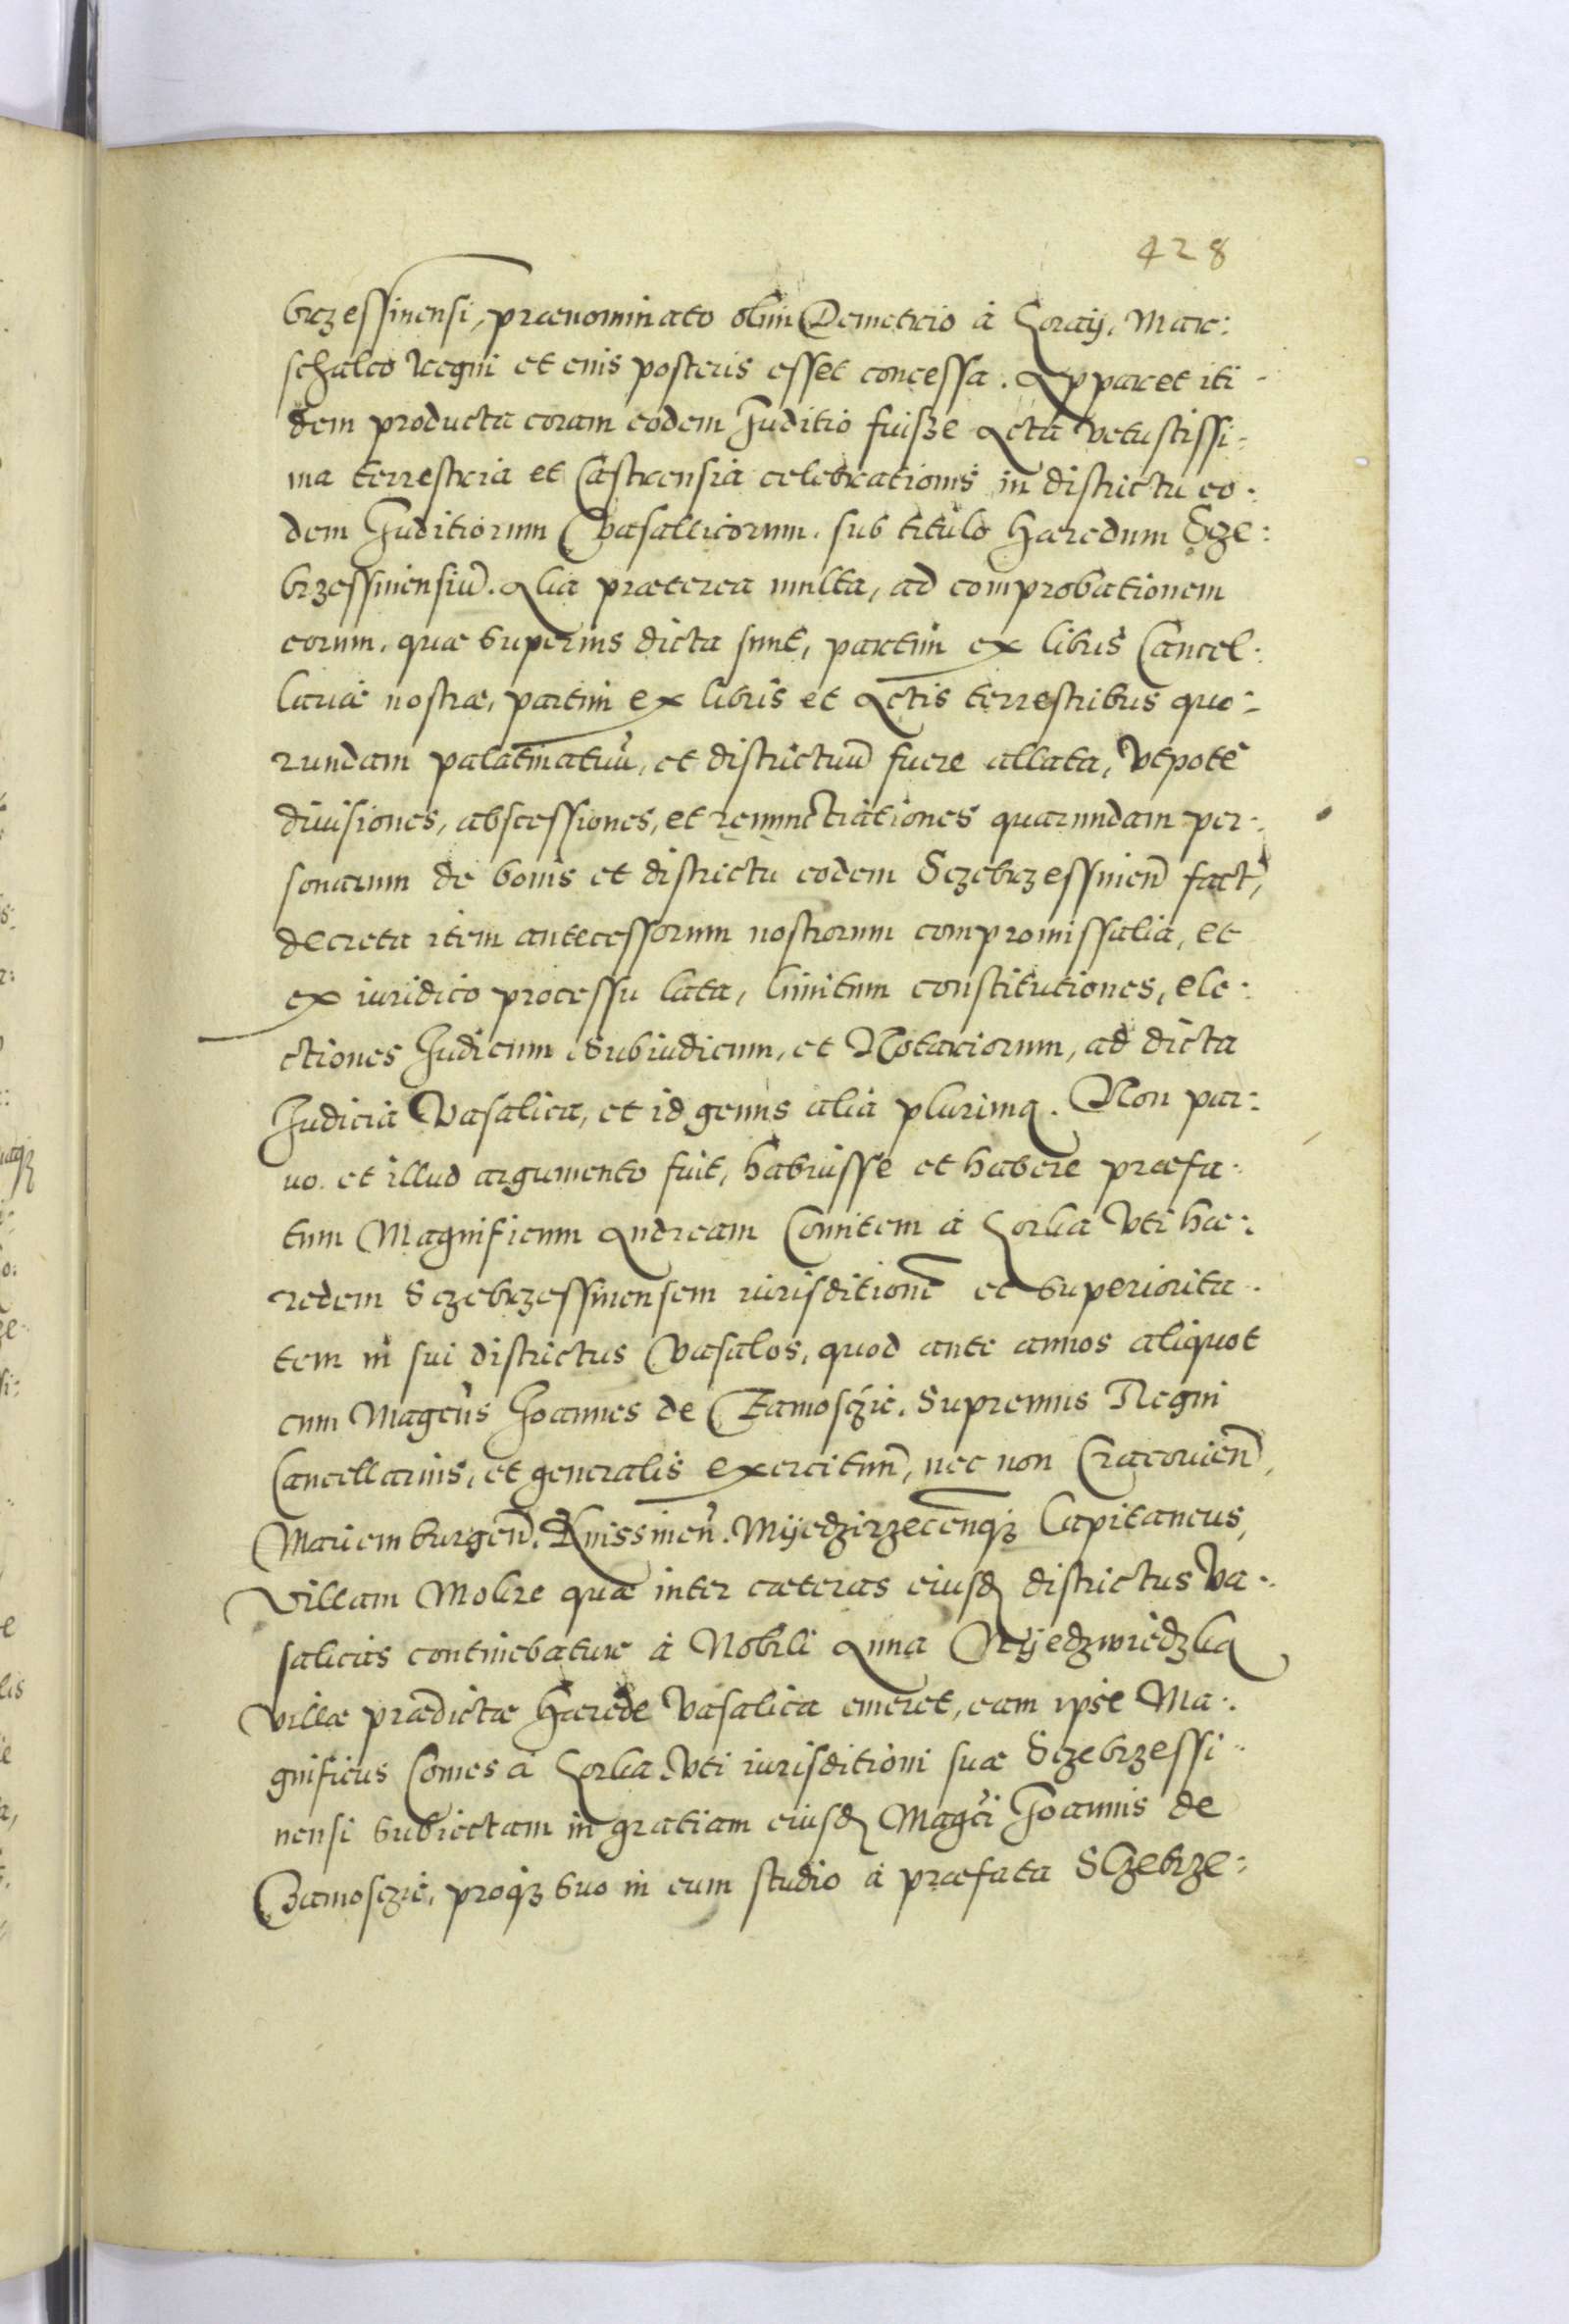 428
brzessinensi, prænominato olim Demetrio à Goraij. Mar:
schalco Regni et eius posteris esset concessa. Apparet iti-
dem producta coram eodem Juditio fuisze Acta vetustissi-
ma terrestria et Castrensia celebrationis in districtu eo-
dem Juditiorum Vasallicorum. sub titulo Hæredum Sze:
brzessinensiū. Alia præterea multa, ad comprobationem
eorum, quæ superius dicta sunt, partim ex libris Cancel:
lariæ nostræ, partim ex libris et Actis terrestribus quo-
rundam palatinatuū, et districtuū fuere allata, vtpotè
diuisiones, abscessiones, et renunctiationes quarundam per-
sonarum de bonis et districtu eodem Sczebrzessinen̄ fact,
decreta item antecessorum nostrorum compromissalia, et
ex iuridico processu lata, limitum constitutiones, ele-
ctiones Judicum Subiudicum, et Notariorum, ad dicta
Judicia Vasalica, et id genus alia plurima. Non par:
uo et illud argumento fuit, habuisse et habere præfa-
tum Magnificum Andream Comitem à Gorka vti hæ:
redem Sczebrzessinensem iurisditionē et superiorita-
tem in sui districtus Vasalos, quod ante annos aliquot
cum Magcūs Joannes de Zamosczie. Supremus Regni
Cancellarius, et generalis exercituū, nec non Cracouien̄,
Mariemburgen̄. Knissinen̄. Mijedzirzecenq₃ Capitaneus,
Villam Mokre quæ inter cæteras eiusd districtus Va-
salicas continebatur à Nobili Anna Nijedzwiedzka
villæ prædictæ Hærede Vasalica emeret, eam ipse Ma-
gnificus Comes à Gorka vti iurisditioni suæ Sczebrzessi-
nensi subiectam in gratiam eiusd Magci Joannis de
Zamosczie, proq₃ suo in eum studio à præfata SCzebrze: